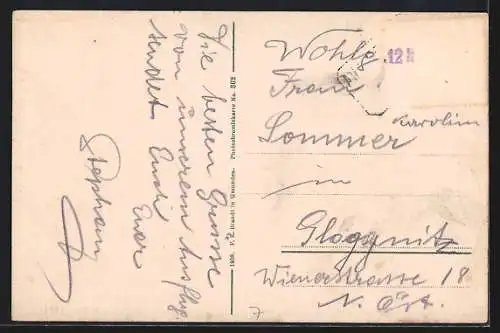 Die besten Grüsse
von unserem Ausflug.
sendet Euch
Euer
Stephan
1908. F. E. Brandt in Gmunden. Photochromiekarte No. 802
Wohlg
12 h
Frau
Karolin
Sommer
in
Gloggnitz
Wienerstrasse 18
N. Öst.
7